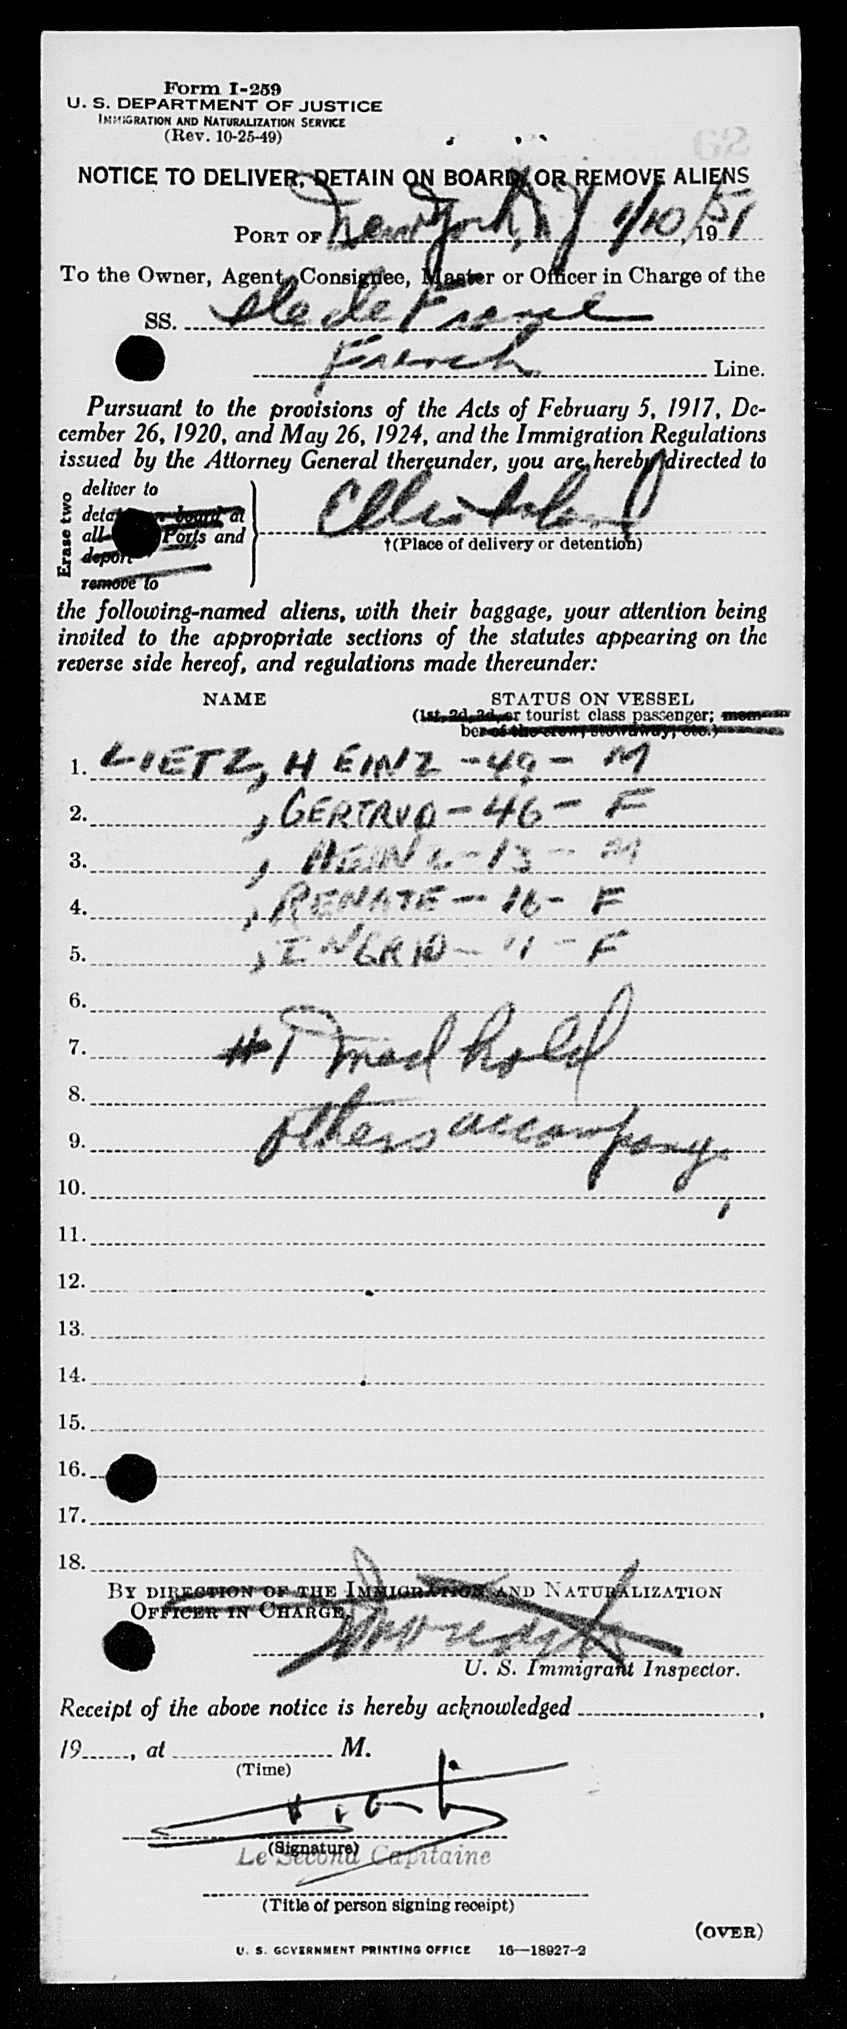 Form I-259
U. S. DEPARTMENT OF JUSTICE
IMMIGRATION AND NATURALIZATION SERVICE
(Rev. 10-25-49)
NOTICE TO DELIVER, DETAIN ON BOARD, OR REMOVE ALIENS
PORT OF New York, N Y 1/10, 1951
To the Owner, Agent, Consignee, Master or Officer in Charge of the
SS. Ile de France
French Line.
Pursuant to the provisions of the Acts of February 5, 1917, De-
cember 26, 1920, and May 26, 1924, and the Immigration Regulations
issued by the Attorney General thereunder, you are hereby directed to
Erase two
deliver to
detain on board at
all Ports and
deport
remove to
Ellis Island
†(Place of delivery or detention)
the following-named aliens, with their baggage, your attention being
invited to the appropriate sections of the statutes appearing on the
reverse side hereof, and regulations made thereunder:
NAME STATUS ON VESSEL
(1st, 2d, 3d, or tourist class passenger; mem-
ber of the crew, stowaway, etc.)
1. LIETZ, HEINZ - 49 - M
2. , GERTRUD - 46 - F
3. , HEINZ - 13 - M
4. , RENATE - 16 - F
5. , INGRID - 11 - F
6.
7. #1 med hold
8.
9. others accompany.
10.
11.
12.
13.
14.
15.
16.
17.
18.
BY DIRECTION OF THE IMMIGRATION AND NATURALIZATION
OFFICER IN CHARGE,
U. S. Immigrant Inspector.
Receipt of the above notice is hereby acknowledged ,
19 , at M.
(Time)
(Signature)
Le Second Capitaine
(Title of person signing receipt)
(OVER)
U. S. GOVERNMENT PRINTING OFFICE 16—18927-2